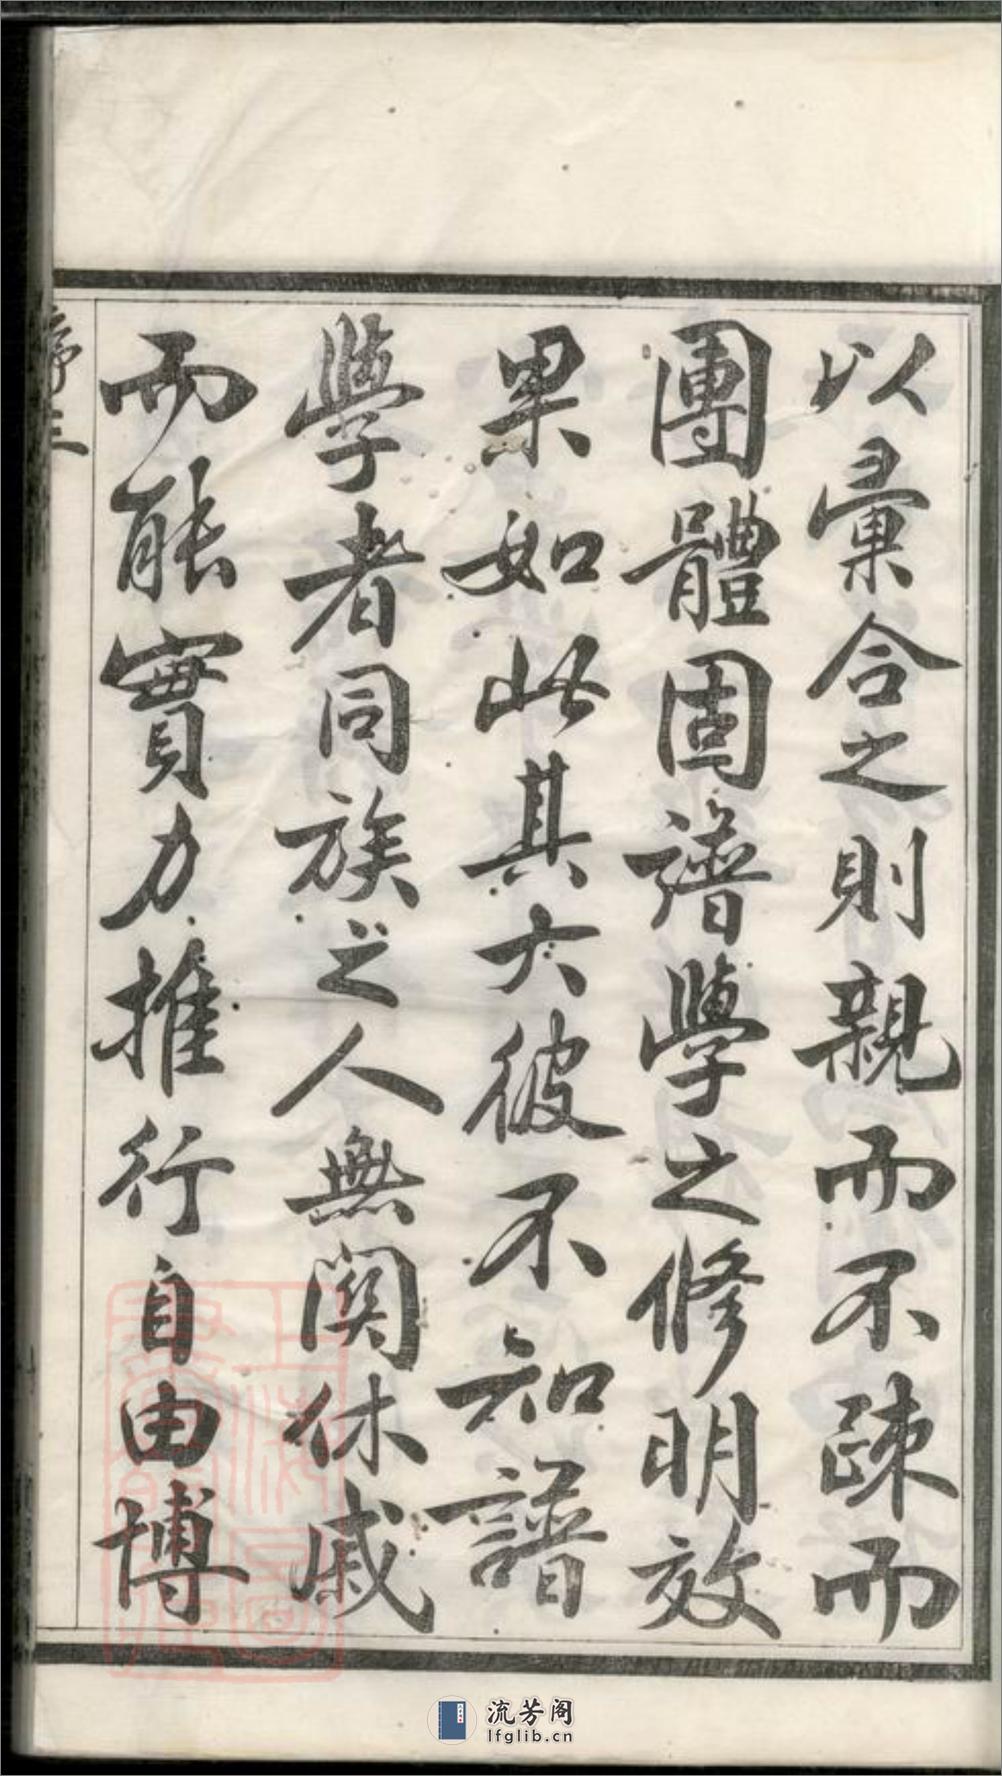 以彙合之則親而不疎而
團體固譜學之修明效
果如此其大彼不知譜
學者同族之人無関休戚
而能實力推行自由博
序三
上海圖書館藏
流芳阁
lfglib.cn